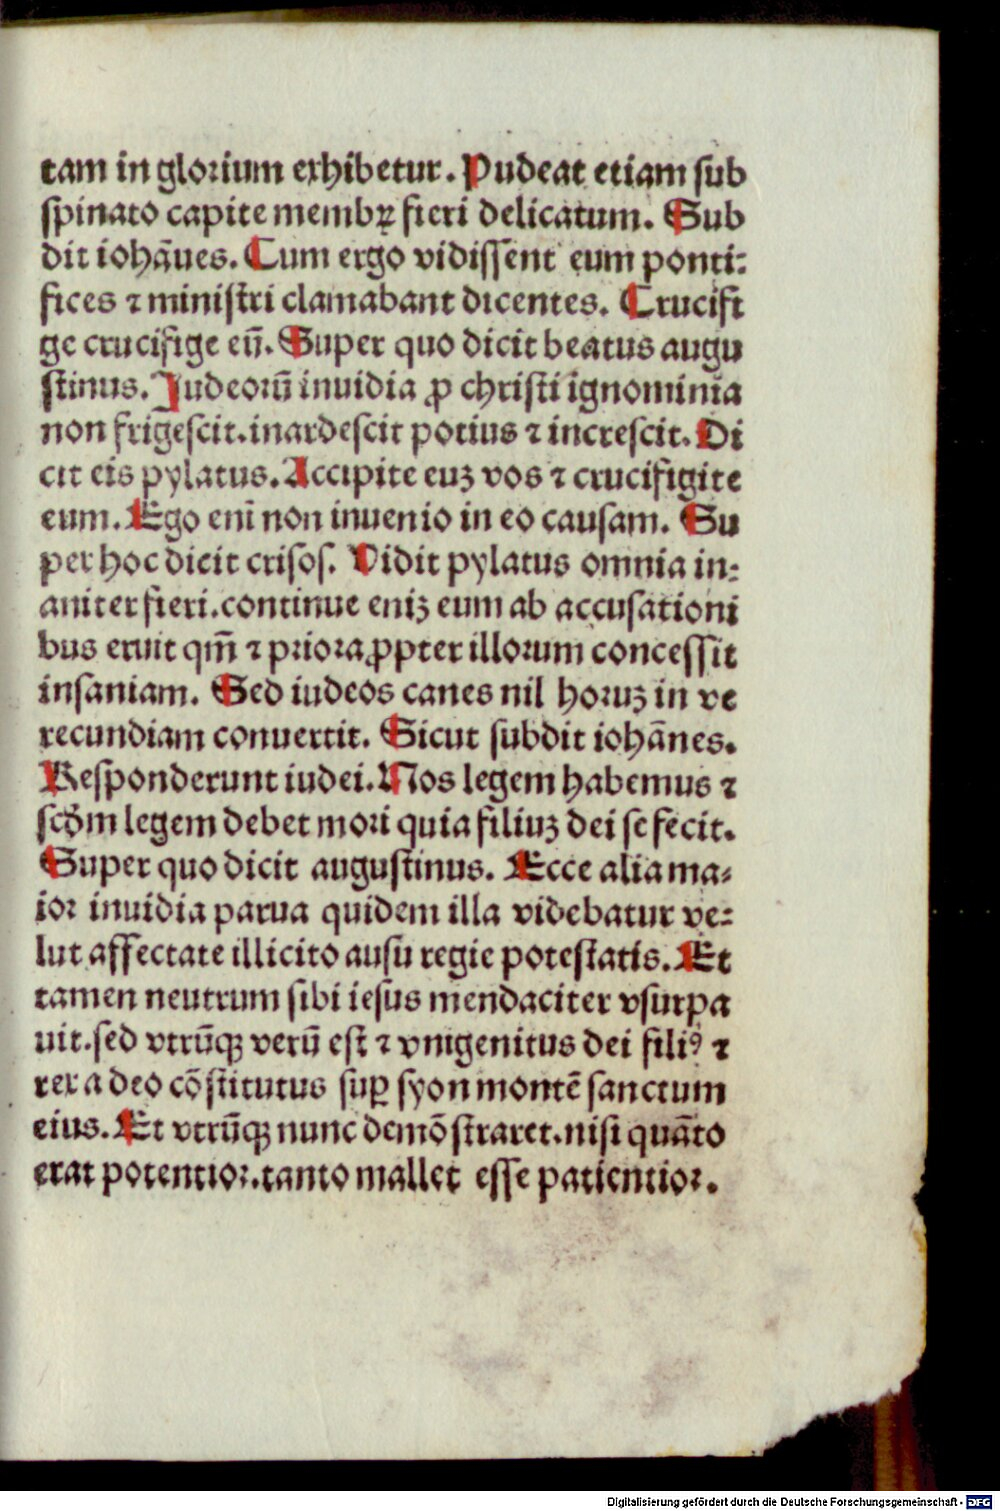 tam in glorium exhibetur. Pudeat etiam sub
spinato capite membꝝ fieri delicatum. Sub
dit iohāues. Cum ergo vidissent eum ponti-
fices ⁊ ministri clamabant dicentes. Crucifi
ge crucifige eū. Super quo dicit beatus augu
stinus. Judeorū inuidia ꝓ christi ignominia
non frigescit. inardescit potius ⁊ increscit. Di
cit eis pylatus. Accipite euꝫ vos ⁊ crucifigite
eum. Ego eni non inuenio in eo causam. Su
per hoc dicit crisos. Vidit pylatus omnia in-
aniter fieri. continue eniꝫ eum ab accusationi
bus eruit qm̄ ⁊ priora ꝓpter illorum concessit
insaniam. Sed iudeos canes nil horuꝫ in ve
recundiam conuertit. Sicut subdit iohānes.
Responderunt iudei. Nos legem habemus ⁊
scd̄m legem debet mori quia filiuꝫ dei se fecit.
Super quo dicit augustinus. Ecce alia ma-
ior inuidia parua quidem illa videbatur ve-
lut affectate illicito ausu regie potestatis. Et
tamen neutrum sibi iesus mendaciter vsurpa
uit. sed vtrūqꝫ verū est ⁊ vnigenitus dei filiꝰ ⁊
rex a deo cōstitutus suꝑ syon montē sanctum
eius. Et vtrūqꝫ nunc demōstraret. nisi quāto
erat potentior. tanto mallet esse patientior.
Digitalisierung gefördert durch die Deutsche Forschungsgemeinschaft - DFG